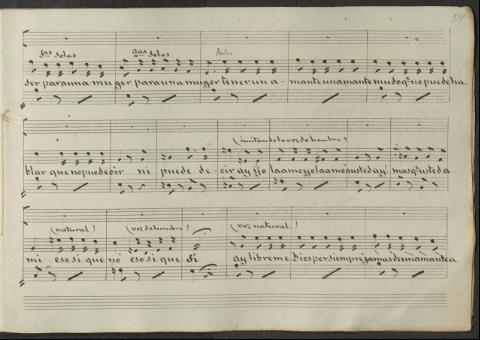 1as solas 2as solas todas
ser para una muger para una muger tener un amante un amante mudo q.e no puede ha
(imitando la voz de hombre)
blar que no puede oir ni puede decir ay yo la amo yo la amo a usted ay mas q.e usted a
(natural) (voz de hombre) (voz natural)
mi eso si que no eso si que si ay libreme Dios por siempre jamas de un amante a